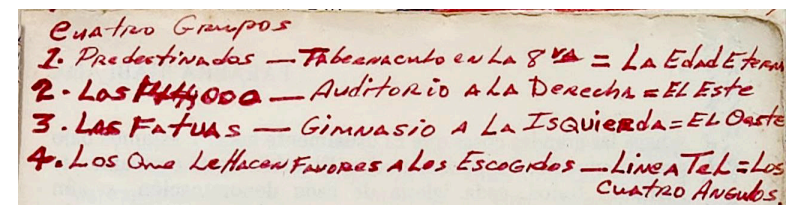 Cuatro Grupos
1. Predestinados — Tabernaculo en La 8va = La Edad Eterna
2. Los 144,000 — Auditorio a La Derecha = El Este
3. Las Fatuas — Gimnasio A La Isquierda = El Oeste
4. Los Que Le Hacen Favores A Los Escogidos — Linea Tel = Los
Cuatro Angulos.